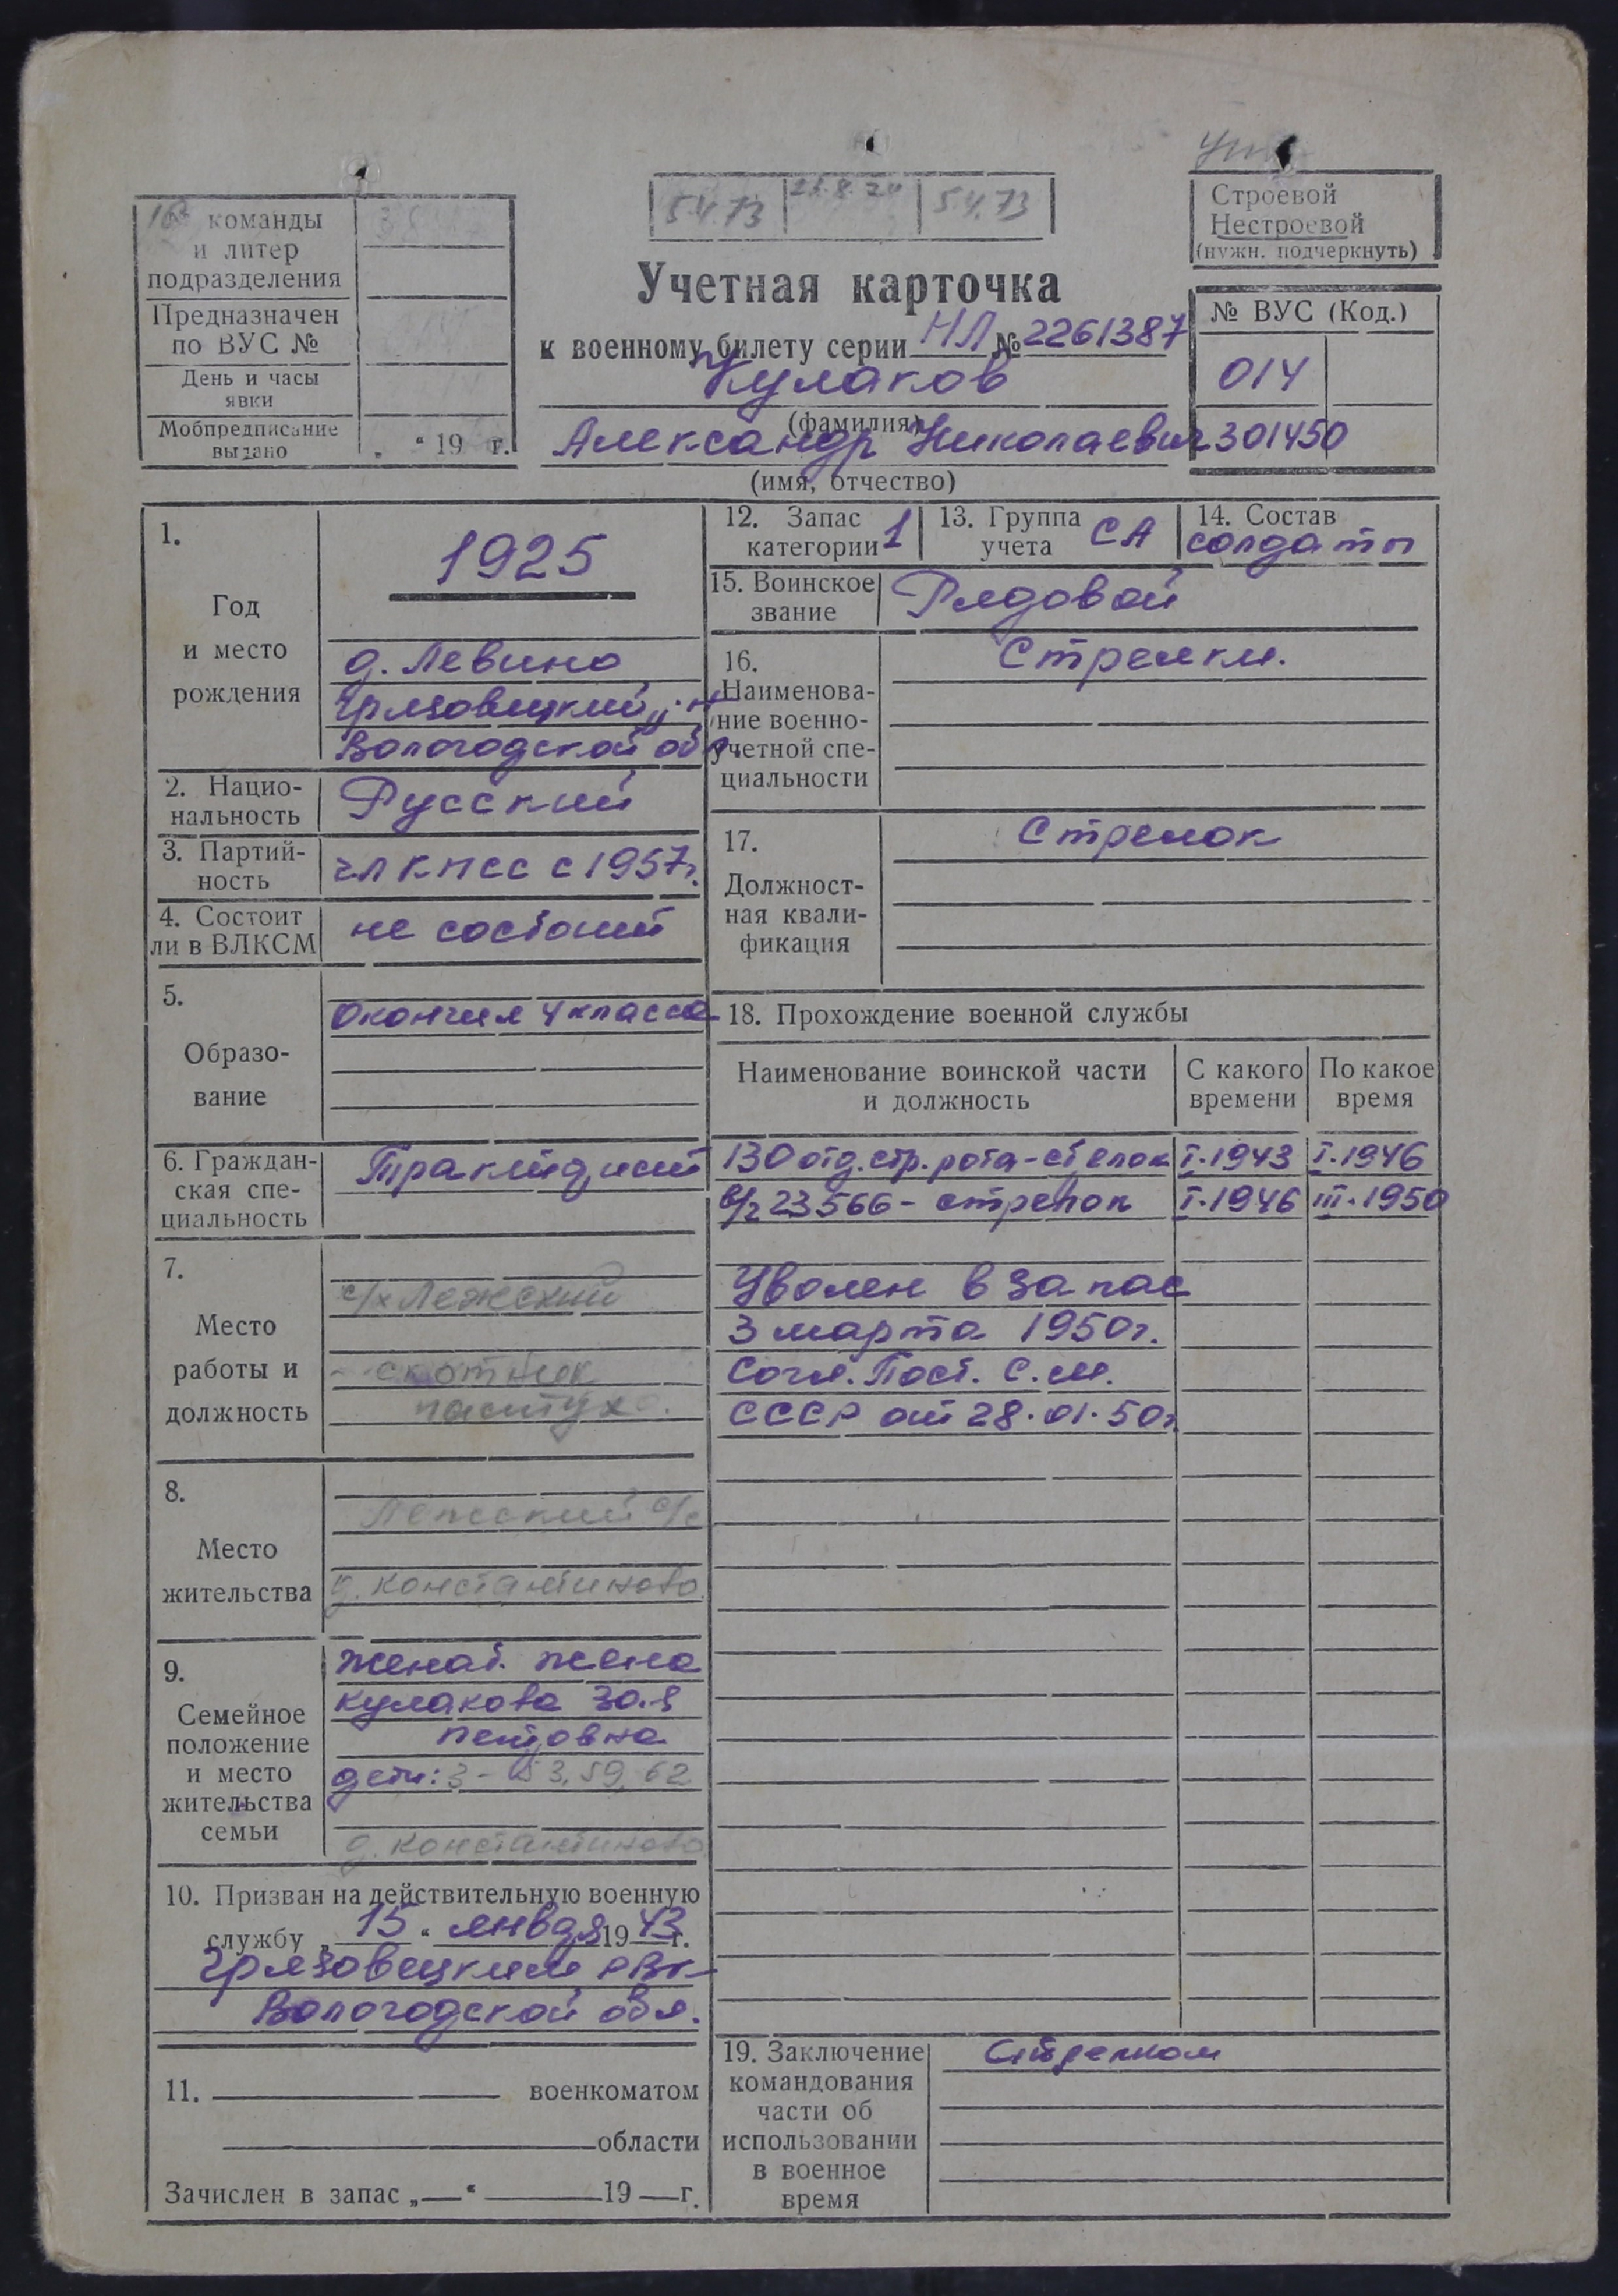 команды
и литер
подразделения
Предназначен
по ВУС №
День и часы
явки
Мобпредписание
выдано „ “ 19 г.
5.4.73 5.4.73
Строевой
Нестроевой
(нужн. подчеркнуть)
Учетная карточка
к военному билету серии НЛ № 2261387
Кулаков
(фамилия)
Александр Николаевич
(имя, отчество)
№ ВУС (Код.)
014
301450
1.
Год
и место
рождения
1925
д. Левино
Грязовецкий
Вологодской обл.
2. Нацио-
нальность
Русский
3. Партий-
ность
чл КПСС с 1957г.
4. Состоит
ли в ВЛКСМ
не состоит
5.
Образо-
вание
Окончил 4 класса
6. Граждан-
ская спе-
циальность
Тракторист
7.
Место
работы и
должность
с/х Лежский
скотник
пастух
8.
Место
жительства
Лежский с/с
д. Константиново
9.
Семейное
положение
и место
жительства
семьи
Женат. жена
Кулакова Зоя
Петровна
дети: 3 - 53, 59, 62
д. Константиново
10. Призван на действительную военную
службу „ 15 “ января 19 43 г.
Грязовецким РВК
Вологодской обл.
11. военкоматом
области
Зачислен в запас „—“ 19 — г.
12. Запас
категории 1
13. Группа
учета СА
14. Состав
солдаты
15. Воинское
звание
Рядовой
16.
Наименова-
ние военно-
учетной спе-
циальности
Стрелки.
17.
Должност-
ная квали-
фикация
Стрелок
18. Прохождение военной службы
Наименование воинской части
и должность
С какого
времени
По какое
время
130 отд. стр. рота - стрелок I.1943 I.1946
в/ч 23566 - стрелок I.1946 III.1950
Уволен в запас
3 марта 1950г.
Согл. Пост. С.М.
СССР от 28.01.50г.
19. Заключение
командования
части об
использовании
в военное
время
Стрелком